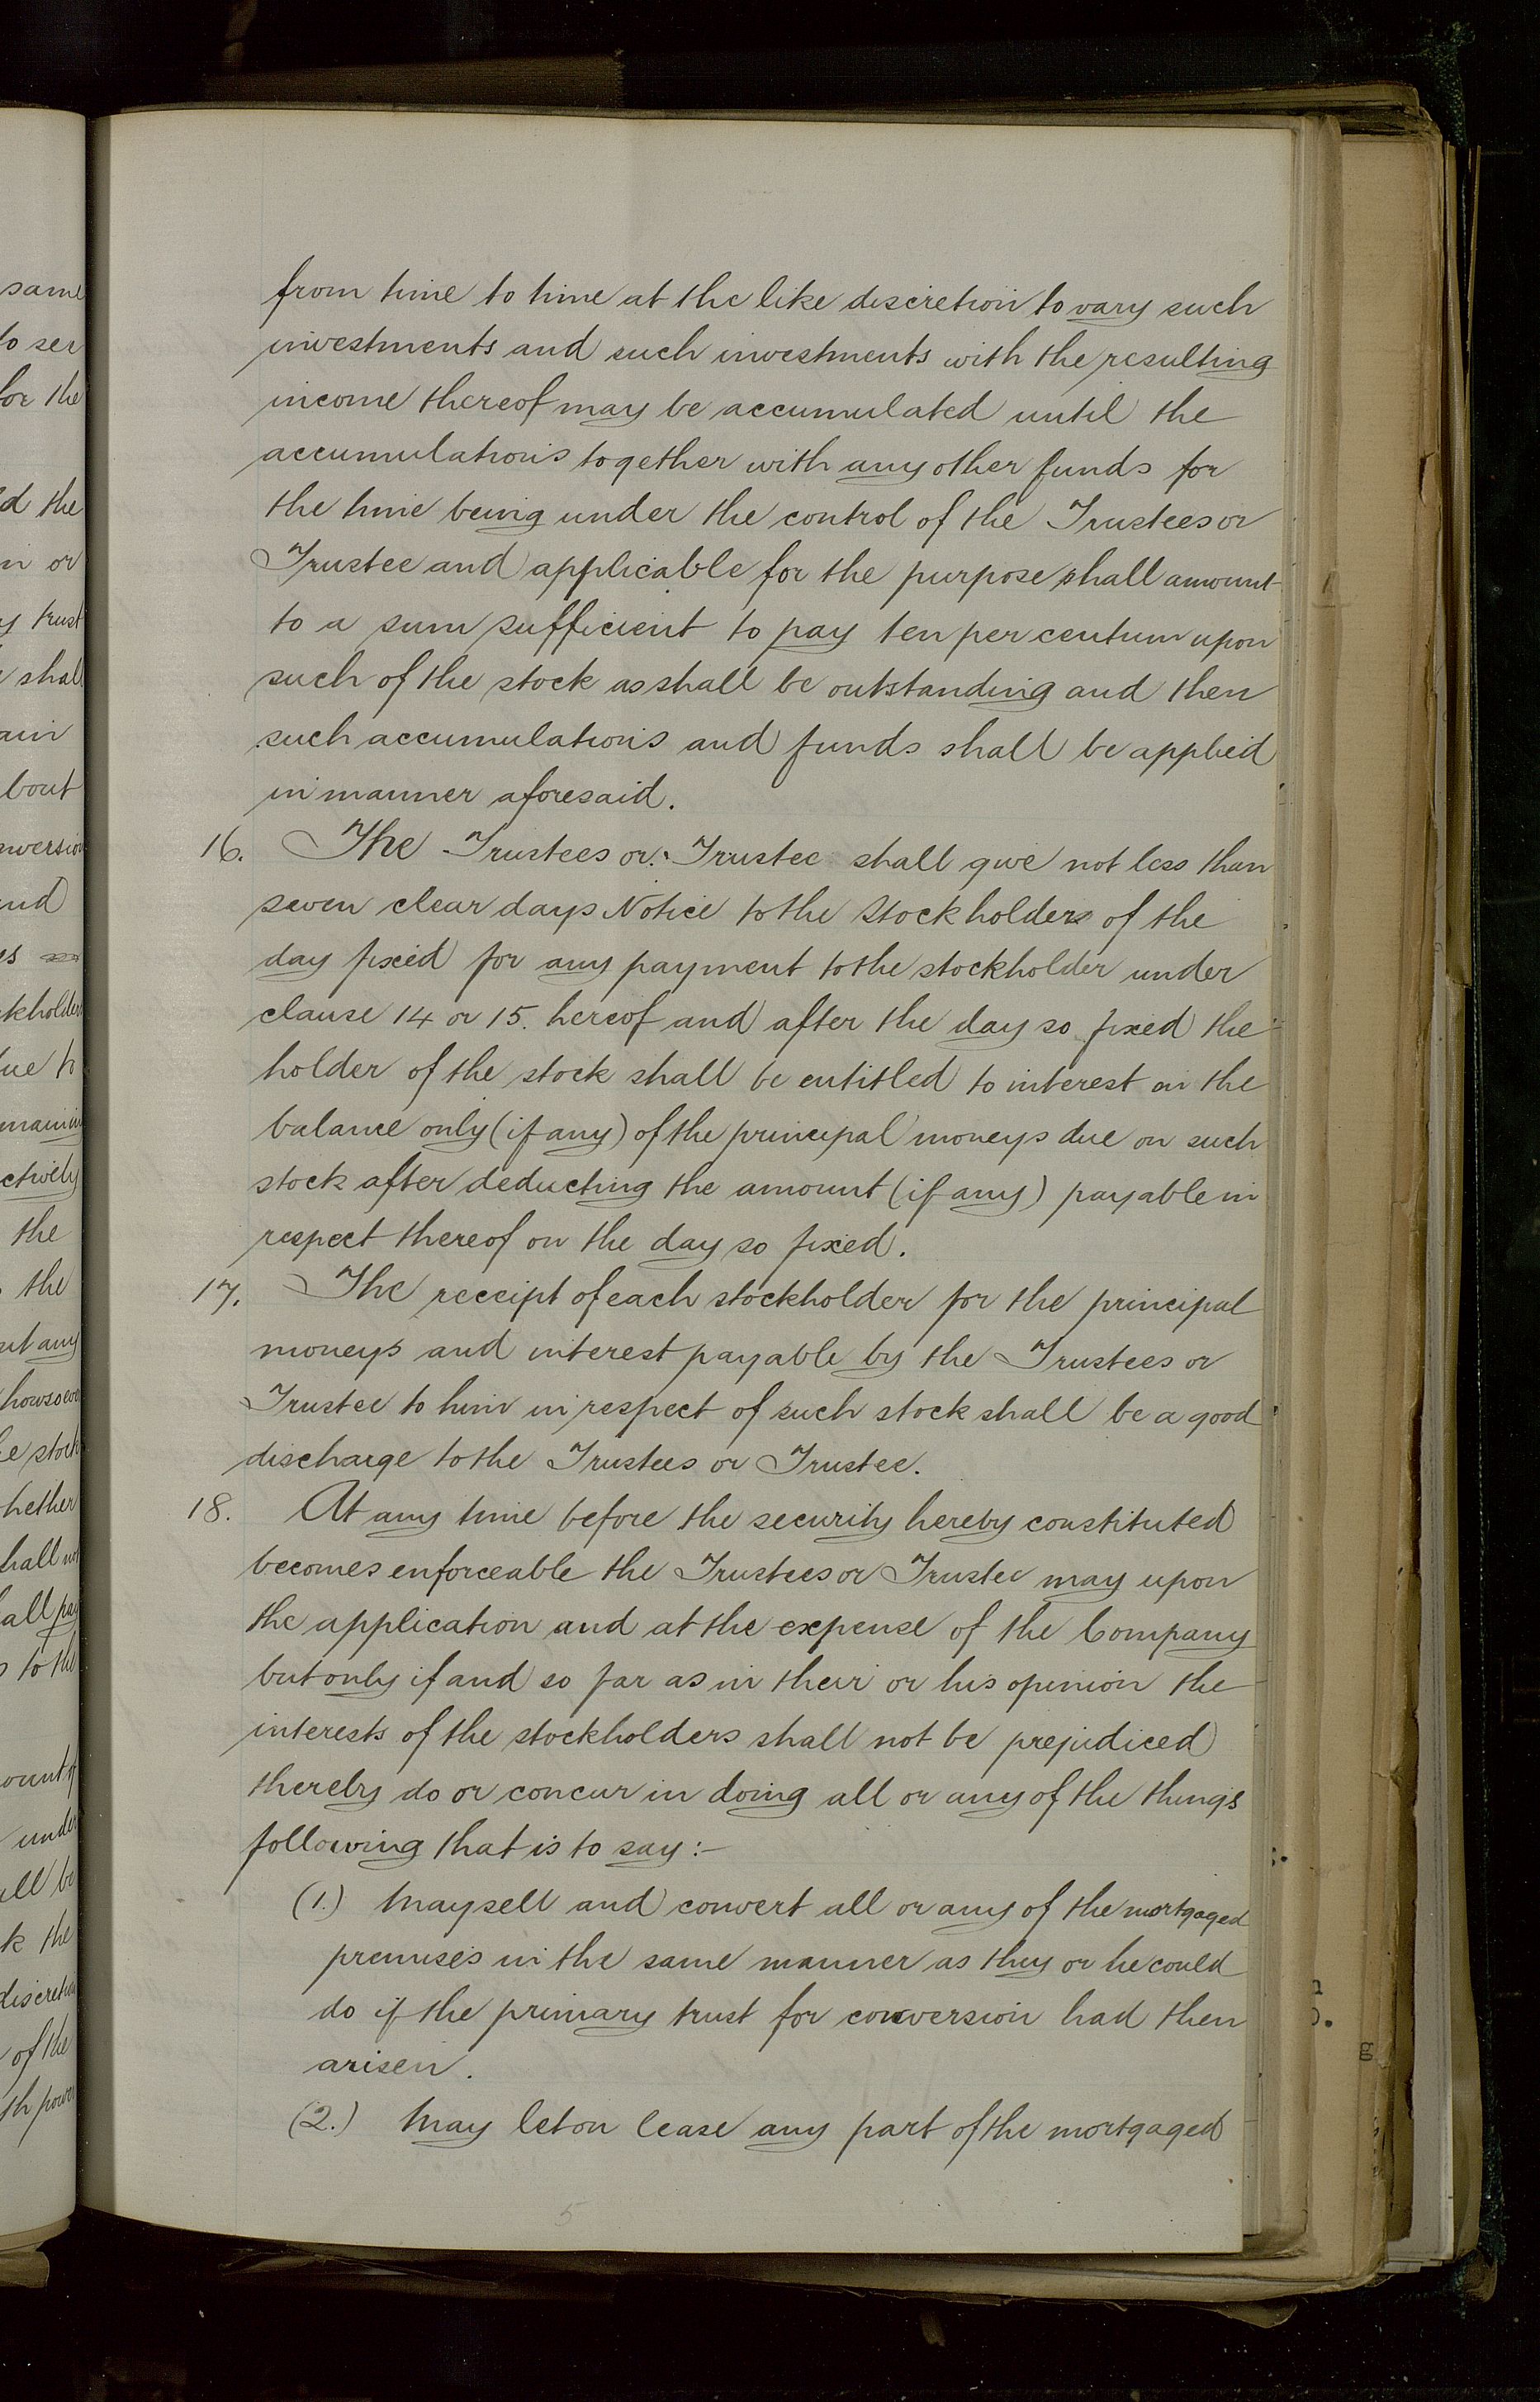 same
to ser
for the
d the
n or
trust
shall
ain
bout
nversion
and
es
ckholders
ue to
ctively
the
the
ut any
howsoever
he stock
hether
hall not
all pay
s to the
ount of
under
all be
k the
discretion
of the
th power
from time to time at the like discretion to vary such
investments and such investments with the resulting
income thereof may be accumulated until the
accumulations together with any other funds for
the time being under the control of the Trustees or
Trustee and applicable for the purpose shall amount
to a sum sufficient to pay ten per centum upon
such of the stock as shall be outstanding and then
such accumulations and funds shall be applied
in manner aforesaid.
16. The Trustees or Trustee shall give not less than
seven clear days Notice to the Stockholders of the
day fixed for any payment to the stockholder under
clause 14 or 15. hereof and after the day so fixed the
holder of the stock shall be entitled to interest on the
balance only (if any) of the principal moneys due on such
stock after deducting the amount (if any) payable in
respect thereof on the day so fixed.
17. The receipt of each stockholder for the principal
moneys and interest payable by the Trustees or
Trustee to him in respect of such stock shall be a good
discharge to the Trustees or Trustee.
18. At any time before the security hereby constituted
becomes enforceable the Trustees or Trustee may upon
the application and at the expense of the Company
but only if and so far as in their or his opinion the
interests of the stockholders shall not be prejudiced
thereby do or concur in doing all or any of the things
following that is to say:-
(1.) May sell and convert all or any of the mortgaged
premises in the same manner as they or he could
do if the primary trust for conversion had then
arisen.
(2.) May let on lease any part of the mortgaged
5
g